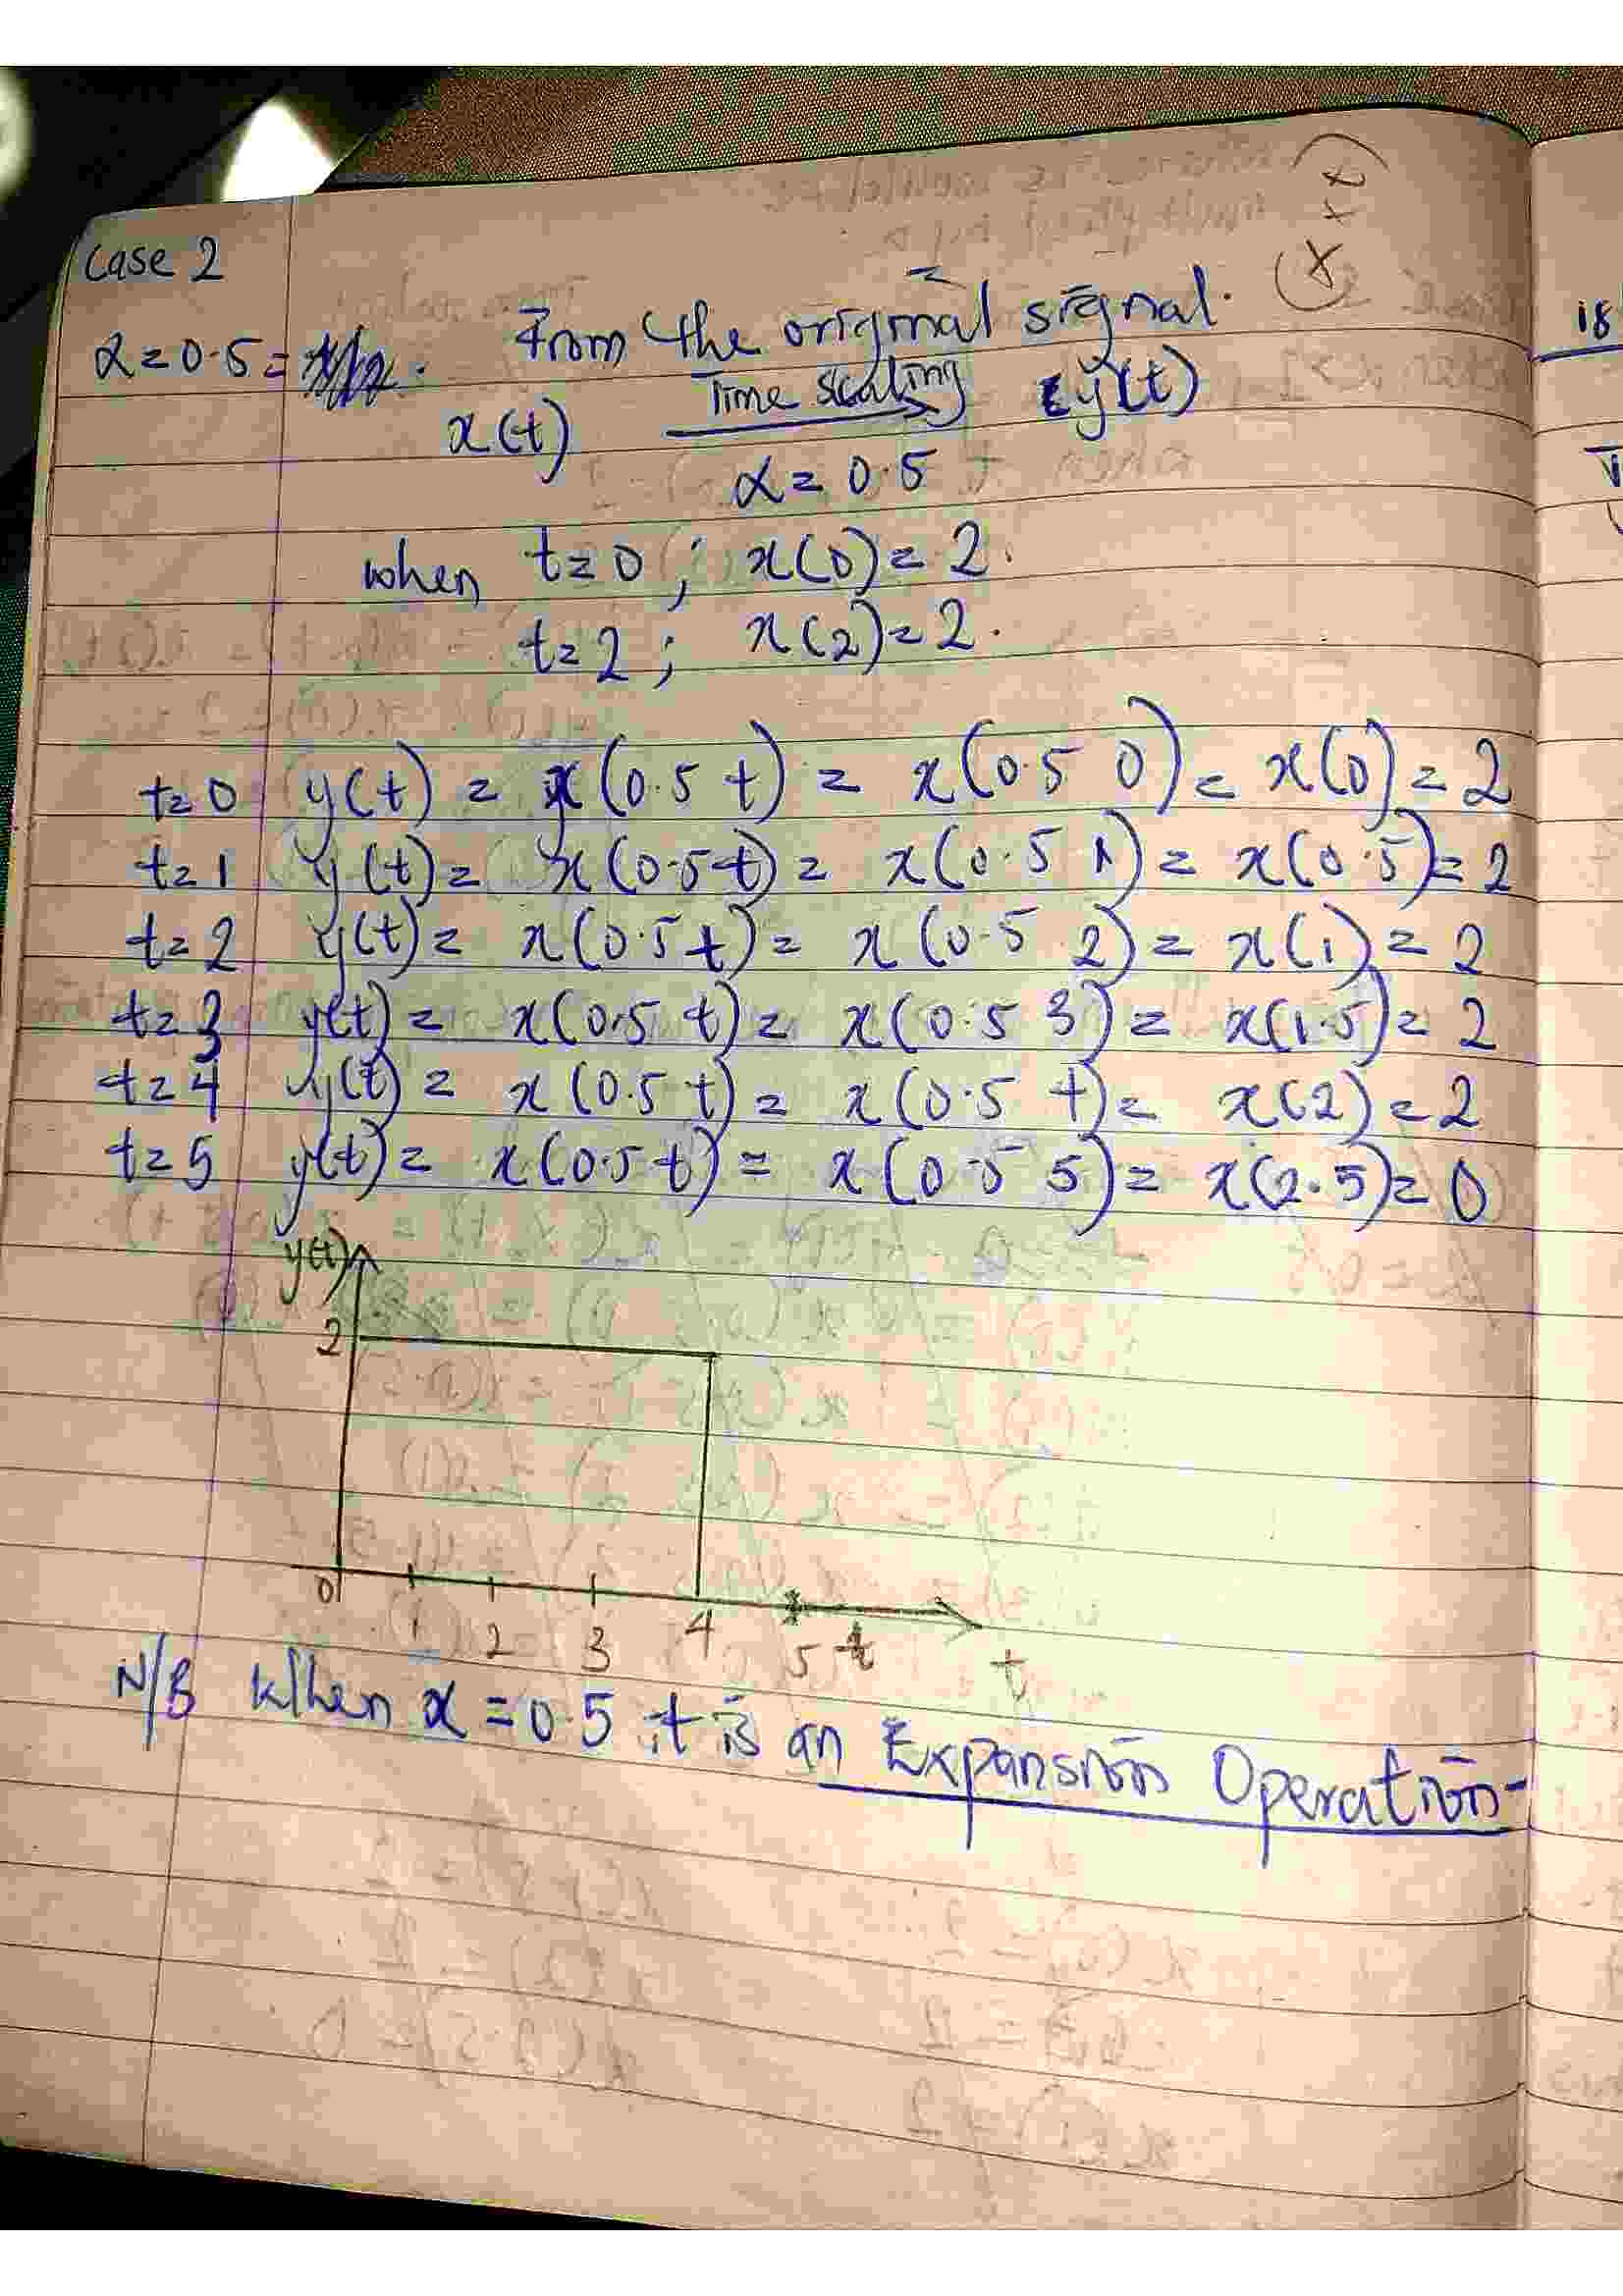 (xxx)
Case 2
α = 0.5 = From the original signal.
x(t) Time scaling y(t)
α = 0.5
when t=0 ; x(0) = 2.
t=2 ; x(2) = 2.
t=0 y(t) = x(0.5 t) = x(0.5 0) = x(0) = 2
t=1 y(t) = x(0.5t) = x(0.5 1) = x(0.5) = 2
t=2 y(t) = x(0.5t) = x(0.5 2) = x(1) = 2
t=3 y(t) = x(0.5 t) = x(0.5 3) = x(1.5) = 2
t=4 y(t) = x(0.5 t) = x(0.5 4) = x(2) = 2
t=5 y(t) = x(0.5t) = x(0.5 5) = x(2.5) = 0
y(t)
2
0 1 2 3 4 5 t
N/B When α = 0.5 it is an Expansion Operation
18